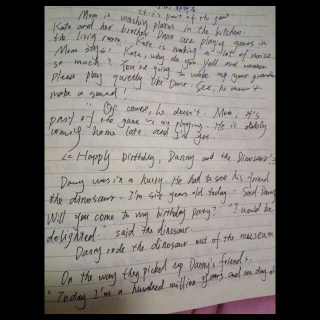 It's part of the game
Mom is washing plates in the kitchen.
Kate and her brother Dave are playing games in
the living room. Kate is making a lot of noise.
Mom says: Kate, why do you yell and scream
so much? You're going to wake up your grandma
please play quietly like Dave. See, he doesn't
make a sound!
"Of cause, he doesn't. Mom, it's
part of the game we are playing. He is daddy
coming home late and I'm you.
Happy birthday, Danny and the Dinosaur!
Danny was in a hurry. He had to see his friend
the dinosaur. I'm six years old today. Said Danny
Will you come to my birthday party? "I would be
delighted." said the dinosaur.
Danny rode the dinosaur out of the museum
On the way they picked up Danny's friends.
"Today I'm a hundred million years and one day old